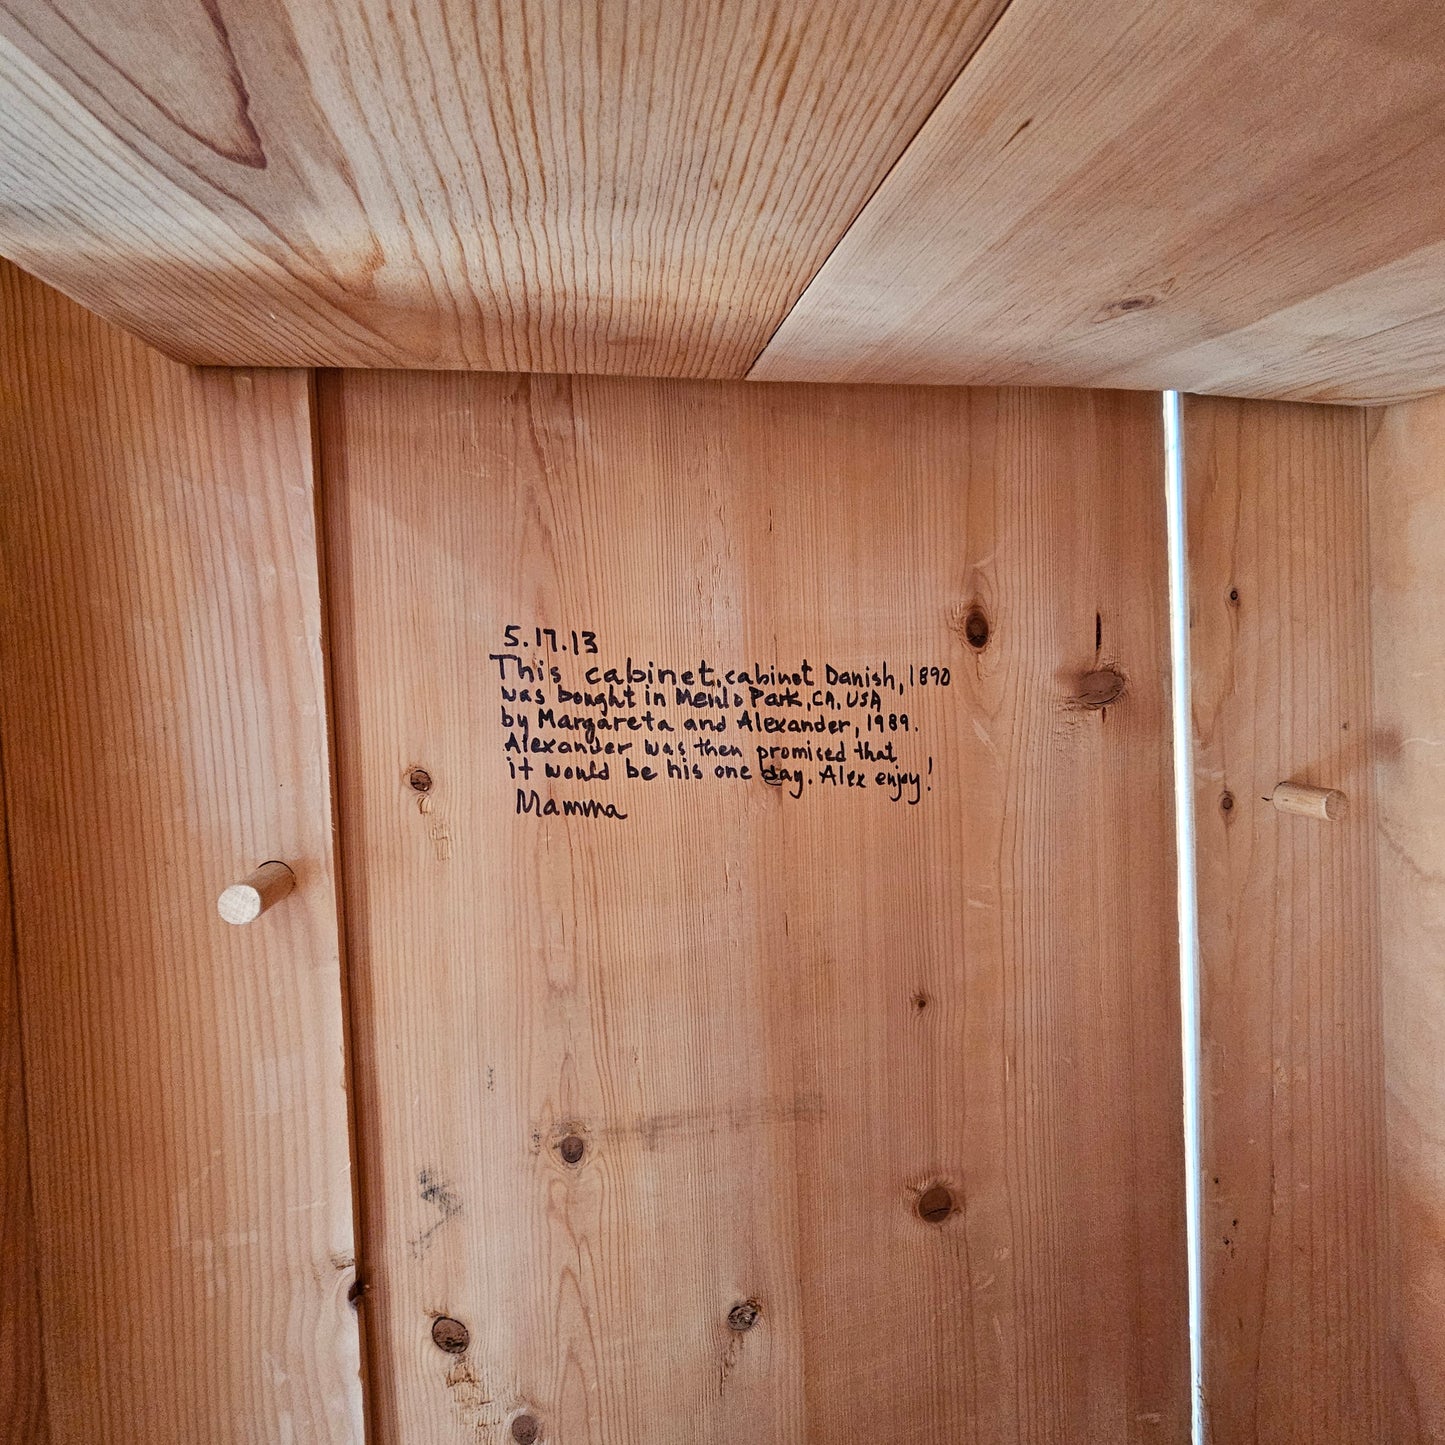 5.17.13
This cabinet, cabinet Danish, 1890
was bought in Menlo Park, CA, USA
by Margareta and Alexander, 1989.
Alexander was then promised that
it would be his one day. Alex enjoy!
Mamma